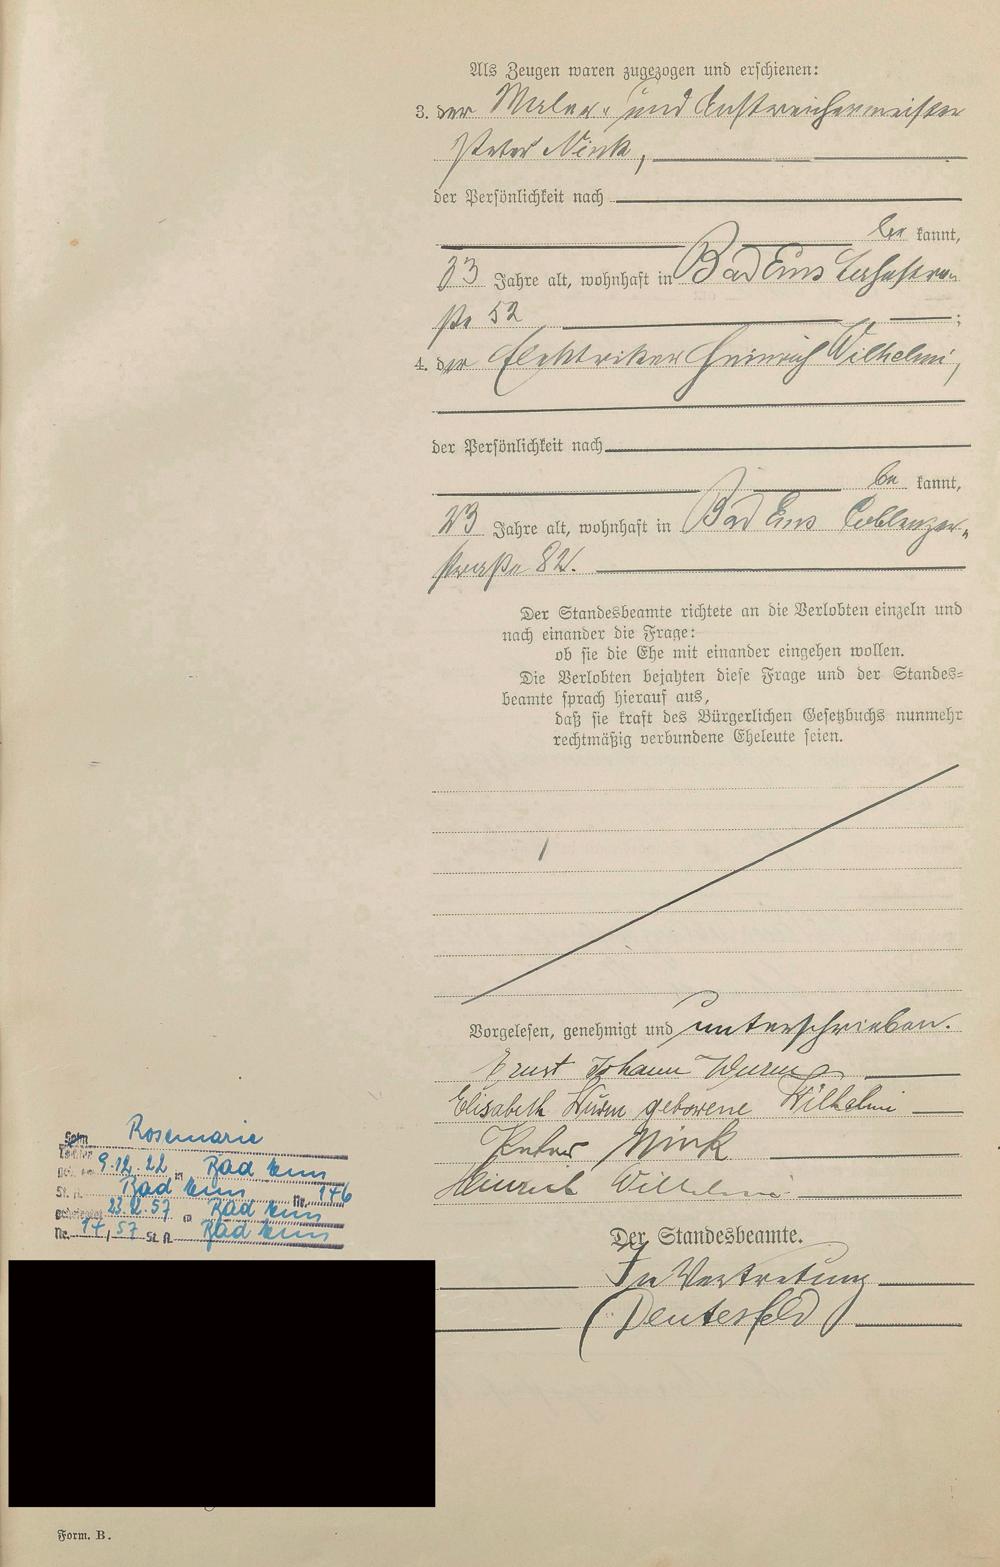 Als Zeugen waren zugezogen und erschienen:
3. der Maler- und Anstreichermeister
Peter Nink,
der Persönlichkeit nach
be kannt,
33 Jahre alt, wohnhaft in Bad Ems Lahnstra-
ße 52 ;
4. der Elektriker Heinrich Wilhelmi,
der Persönlichkeit nach
be kannt,
23 Jahre alt, wohnhaft in Bad Ems Coblenzer-
straße 82.
Der Standesbeamte richtete an die Verlobten einzeln und
nach einander die Frage:
ob sie die Ehe mit einander eingehen wollen.
Die Verlobten bejahten diese Frage und der Standes-
beamte sprach hierauf aus,
daß sie kraft des Bürgerlichen Gesetzbuchs nunmehr
rechtmäßig verbundene Eheleute seien.
Vorgelesen, genehmigt und unterschrieben.
Ernst Johann Wurm
Elisabeth Wurm geborene Wilhelmi
Peter Nink
Heinrich Wilhelmi
Der Standesbeamte.
In Vertretung
Deutesfeld
Sohn Rosemarie
Tochter
geb. am 9.12.22 in Bad Ems
St. A. Bad Ems Nr. 146
geheiratet 23.2.57 in Bad Ems
Nr. 14/57 St. A. Bad Ems
Form. B.